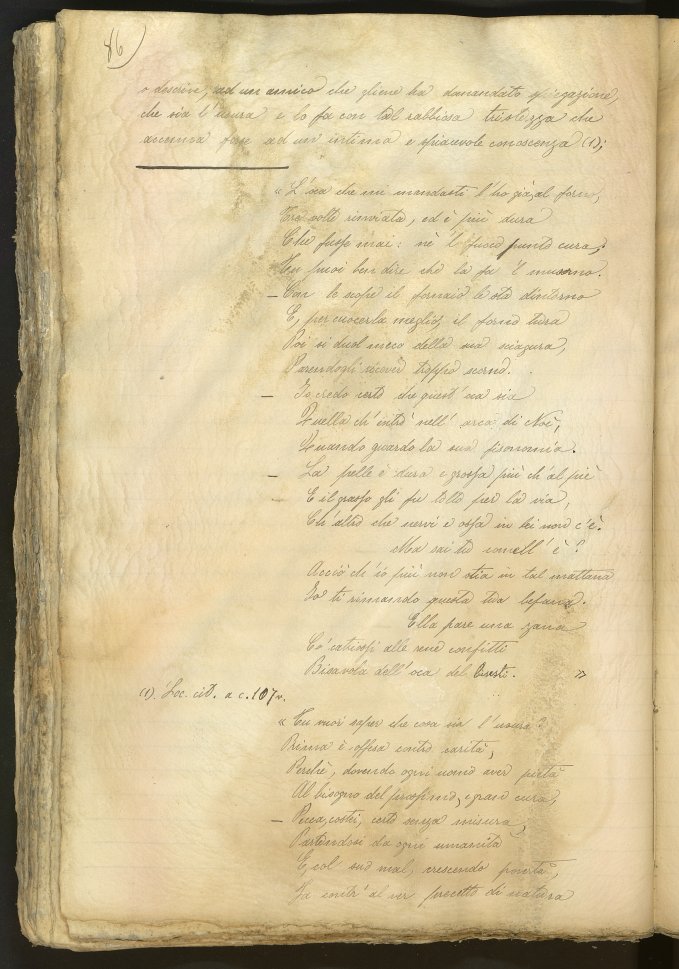 86)
o descrive, ad un amico che gliene ha domandato spiegazione,
che sia l'usura e lo fa con tal rabbiosa tristezza che
accenna forse ad un' intima e spiacevole conoscenza (1);
« L'oca che mi mandasti l'ho già, al forno,
Tre volte rinviata, ed è più dura
Che fusse mai: nè 'l fuoco punto cura,
Tu puoi ben dire che la fa 'l musorno.
— Con le scope il fornaio le sta dintorno
E, per cuocerla meglio, il forno tura
Poi si duol meco della sua sciagura,
Parendogli ricever troppo scorno.
— Io credo certo che quest' sia
Quella ch'entrò nell' arca di Noè,
Quando guardo la sua fisonomia.
— La pelle è dura e grossa più ch'al piè
— E il grasso gli fu tolto per la via,
Ch'altro che nervi e ossa in lei non c'è.
Ma sai tu com'ell' è?
Acciò ch'io più non stia in tal mattana
Io ti rimando questa tua befana.
Ella pare una zana
Co' catriossi alle rene confitti
Bisavola dell'oca del Questi. »
(1). Loc. cit. a c. 107v.
« Tu vuoi saper che cosa sia l'usura?
Prima è offesa contro carità,
Perchè, dovendo ogni uomo aver pietà
Al bisogno del prossimo, e gran cura,
— Pecca costei, certo senza misura,
Partendosi da ogni umanità
E, col suo mal, crescendo povertà,
Fa contr' al ver precetto di natura